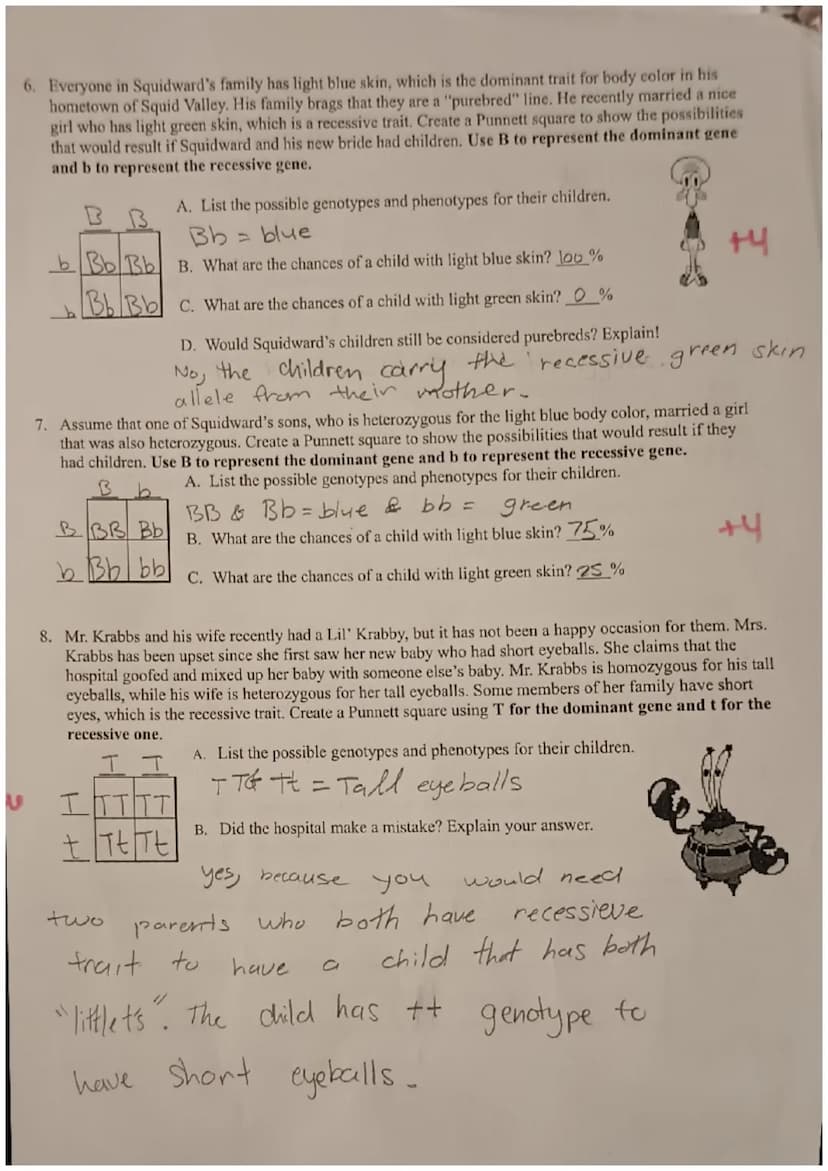 6. Everyone in Squidward's family has light blue skin, which is the dominant trait for body color in his
hometown of Squid Valley. His family brags that they are a "purebred" line. He recently married a nice
girl who has light green skin, which is a recessive trait. Create a Punnett square to show the possibilities
that would result if Squidward and his new bride had children. Use B to represent the dominant gene
and b to represent the recessive gene.
A. List the possible genotypes and phenotypes for their children.
B B
Bb = blue
+4
b Bb Bb
B. What are the chances of a child with light blue skin? 100 %
b Bb Bb
C. What are the chances of a child with light green skin? 0 %
D. Would Squidward's children still be considered purebreds? Explain!
No, the children carry the recessive green skin
allele from their mother.
7. Assume that one of Squidward's sons, who is heterozygous for the light blue body color, married a girl
that was also heterozygous. Create a Punnett square to show the possibilities that would result if they
had children. Use B to represent the dominant gene and b to represent the recessive gene.
B b
A. List the possible genotypes and phenotypes for their children.
BB & Bb = blue & bb = green
B BB Bb
B. What are the chances of a child with light blue skin? 75 %
+4
b Bb bb
C. What are the chances of a child with light green skin? 25 %
8. Mr. Krabbs and his wife recently had a Lil' Krabby, but it has not been a happy occasion for them. Mrs.
Krabbs has been upset since she first saw her new baby who had short eyeballs. She claims that the
hospital goofed and mixed up her baby with someone else's baby. Mr. Krabbs is homozygous for his tall
eyeballs, while his wife is heterozygous for her tall eyeballs. Some members of her family have short
eyes, which is the recessive trait. Create a Punnett square using T for the dominant gene and t for the
recessive one.
T T
A. List the possible genotypes and phenotypes for their children.
TT & Tt = Tall eyeballs
T TT TT
B. Did the hospital make a mistake? Explain your answer.
t Tt Tt
yes, because you would need
two parents who both have recessieve
trait to have a child that has both
"little t's". The child has tt genotype to
have short eyeballs.